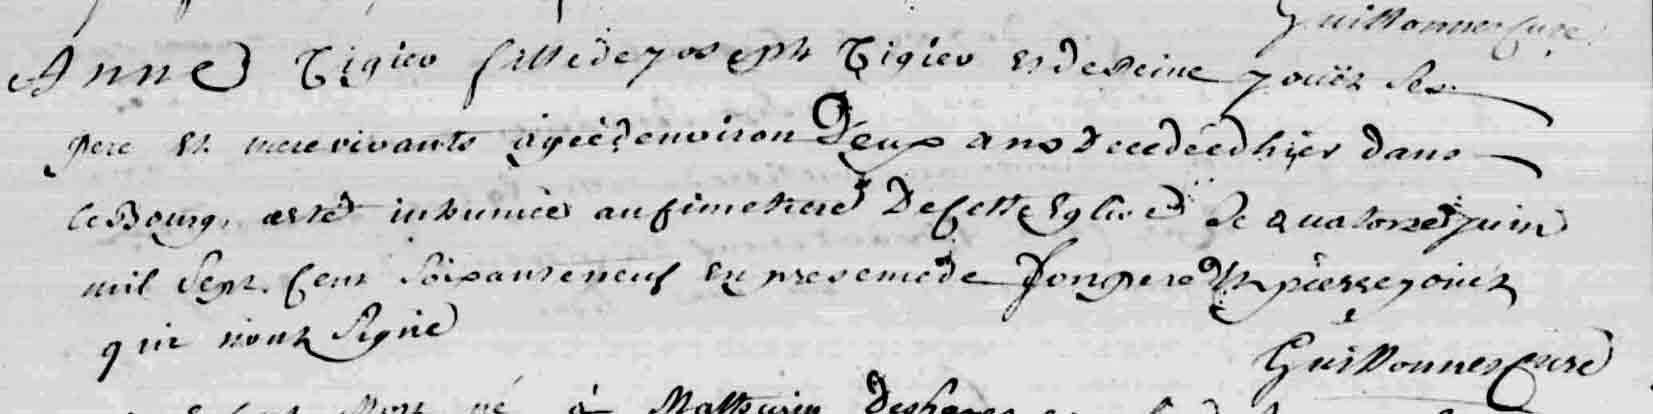 Guittonneau Curé
Anne Tigier fille de joseph Tigier et de Reine jouët ses
pere et mere vivants agée d'environ Deux ans decedée d'hier dans
le Bourg a esté inhumée au simetiere De cette Eglise le quatorze juin
mil sept cent soixante neuf en presence de son pere et pierre jouet
qui n'ont signé
Curé
né à Mathurin Deshayes